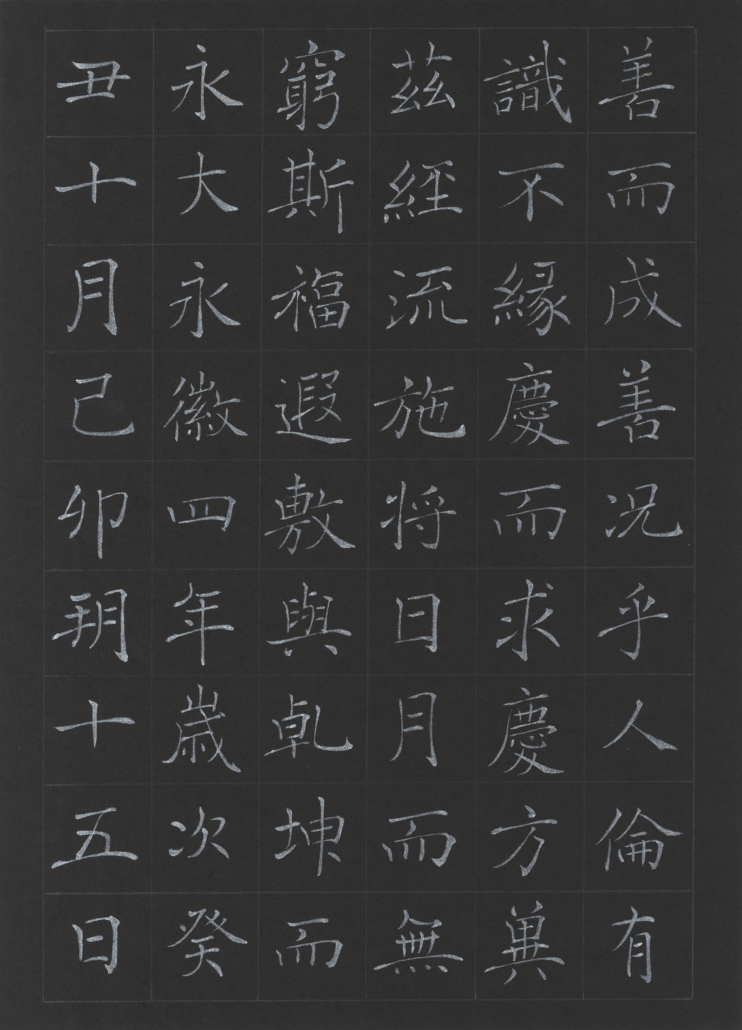 善而成善况乎人倫有
識不緣慶而求慶方兾
茲經流施将日月而無
窮斯福遐敷與乹坤而
永大永徽四年歲次癸
丑十月己卯玥十五日